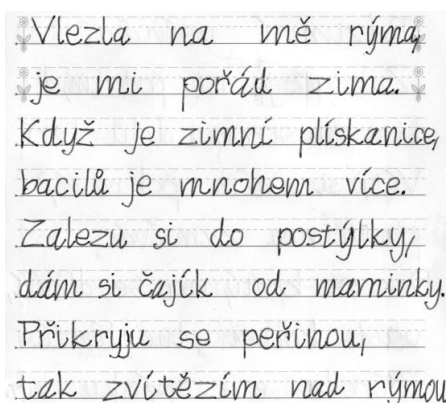 Vlezla na mě rýma,
je mi pořád zima.
Když je zimní plískanice,
bacilů je mnohem více.
Zalezu si do postýlky,
dám si čajík od maminky.
Přikryju se peřinou,
tak zvítězím nad rýmou